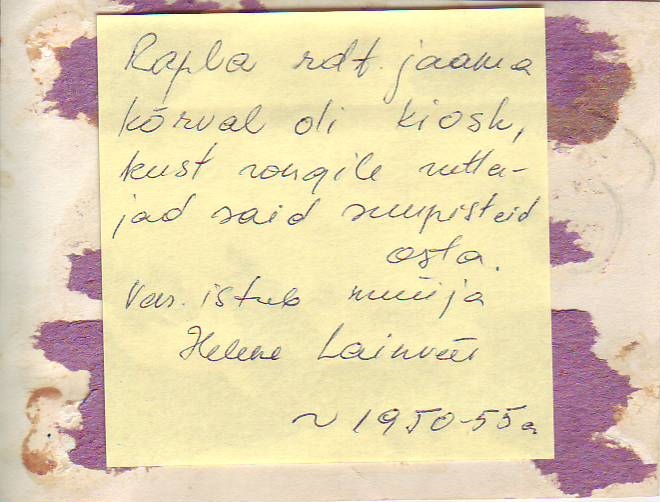 Rapla rdt. jaama
kõrval oli kiosk,
kust rongile rutta-
jad said suupisteid
osta.
Vas. istub müüja
Helene Lainveer
~ 1950-55 a